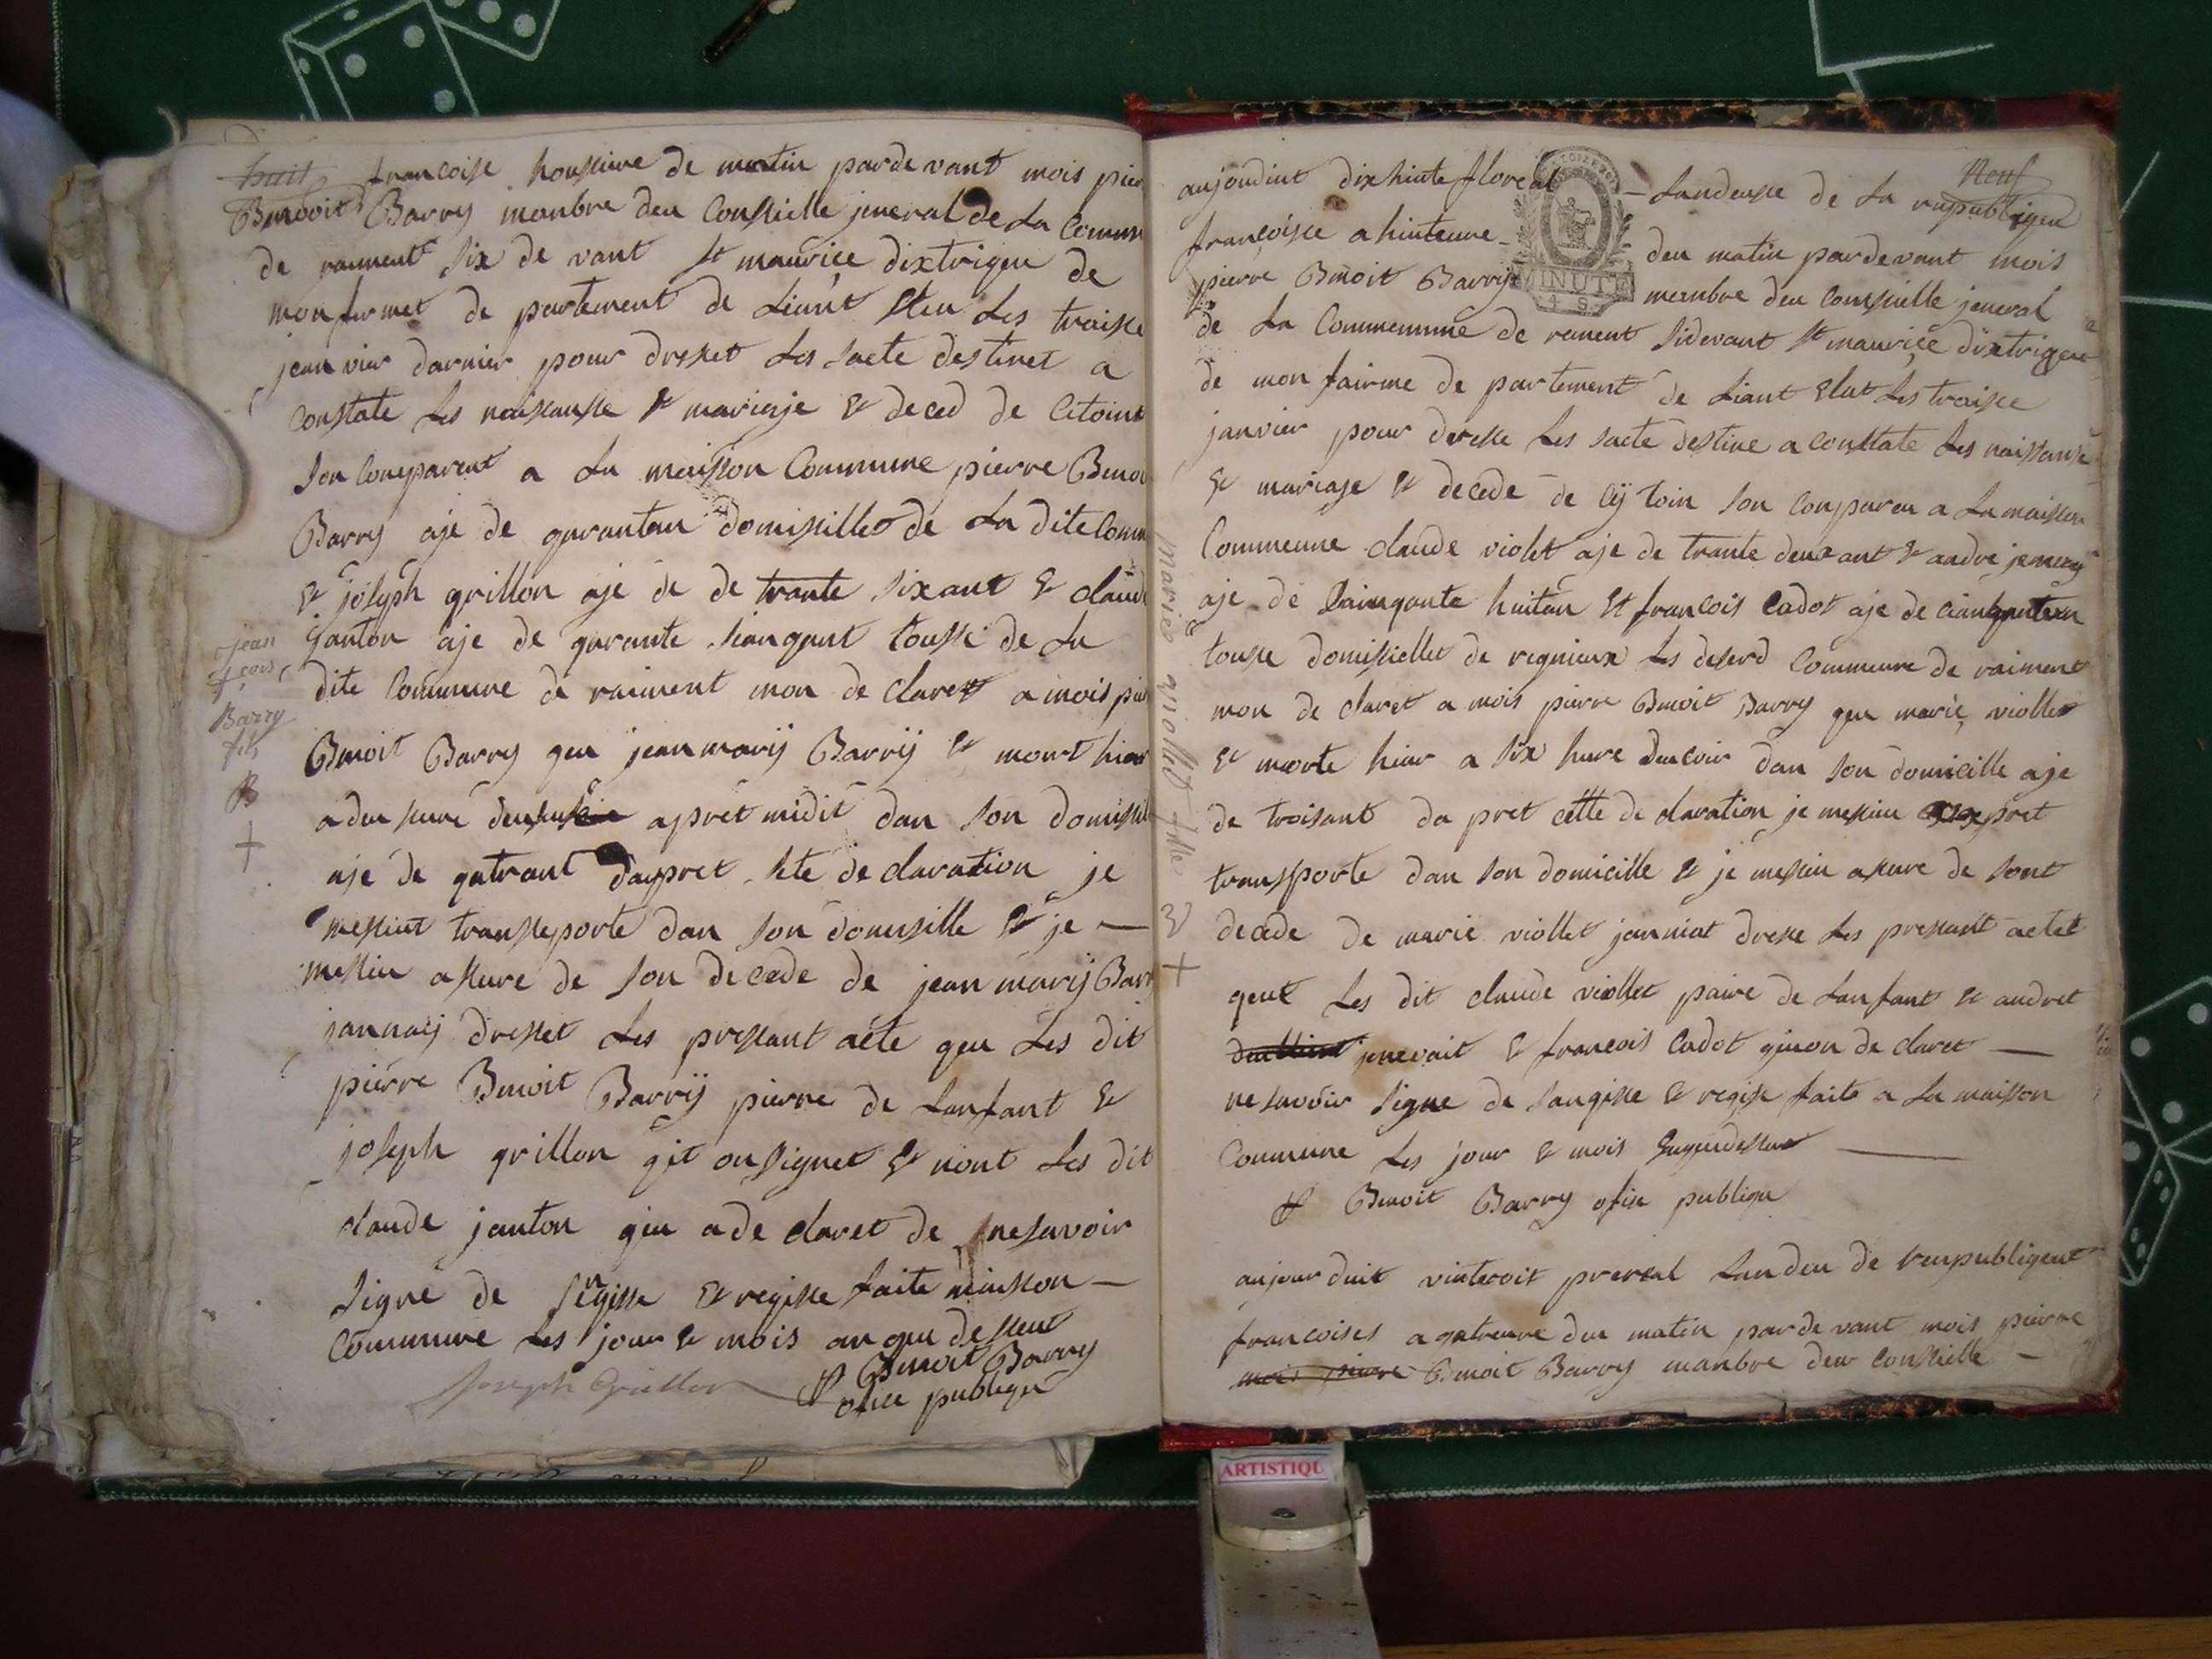 huit
francoise honssieure de matin parde vant mois pier
Bmooit Barry manbre deu Conssielle jeneral de La Comun
de raiment six de vant st maurice dixtrigeu de
monfermet de partement de Liant Eteu Les traisse
jeanvier darnier pour dresset Les Sacte destinet a
Constate Les naissansse et mariaje et deced de Citoient
son Comparent a La maisson Commune pierre Bmoi
Barry aje de garantan domissillet de La dite Comm
et joseph grillon aje de de trante six ant et claude
janton aje de garante siangant tousse de La
dite Commune de raiment mon de claret a mois pier
Bmoit Barry geu jean marij Barrij et mort hier
a deu heure apret midit dan son domissile
aje de gatrant dapret sete de claration je
messiut transseporte dan son domissille et je —
messiu assure de son decede de jean marij Barr
jannaij dresset Les pressant acte geu Les dit
pierre Bmoit Barrij pierre de Lanfant et
joseph grillon git on signet et nont Les dit
claude janton giu a de claret de nesavoir
signé de sengisse et regisse faite maisson —
Commune Les jour et mois an geu desseut
joseph Grillon
P Bmoit Barry
ofise publigu
jean
fcois
Barry
fils
B
+
Neuf
aujouduit dixhuite floreal — Landeusse de La rupubligeu
françoisse a huiteure — deu matin pardevant mois
pierre Bmoit Barry membre deu Conssielle jeneral
MINUTE
4 S.
de La Commemune de rament sidevant st maurice dixtrigeu
de mon fairme de partement de Liant Elat Les traisse
janvier pour dresse Les sacte destine a Constate Les naissansse
et mariaje et decede de Cÿtoin son Compareu a La maisson
Commeune claude violet aje de trante deux ant et andre jenevay
aje de Cainqante huitan et francois Cadot aje de cianquntean
tousse domissiellet de regnieux Les deserd Commeune de raiment
mon de claret a mois pierre Bmoit Barry geu marie viollet
et morte hier a six hure deu soir dan son domicille aje
de troisant da pret cette de claration je messiu pret
transporte dan son domicille et je messiu assure de sont
decede de marie viollet janniat dresse Les pressant actet
geut Les dit claude viollet paire de Lanfant et andret
jenevait et francois Cadot giuon de claret —
ne savoir signe de sangisse et regise faite a La maisson
Commune Les jour et mois Eangeudesseut —
P Bmoit Barry ofise publigu
aujourduit vinteroit prereal Landeu de Larepubligeut
francoises a gatreure deu matin parde vant mois pierre
mois pierre Bmoit Barry manbre deu Conssielle —
marie viollet fille 3
+
ARTISTIQU